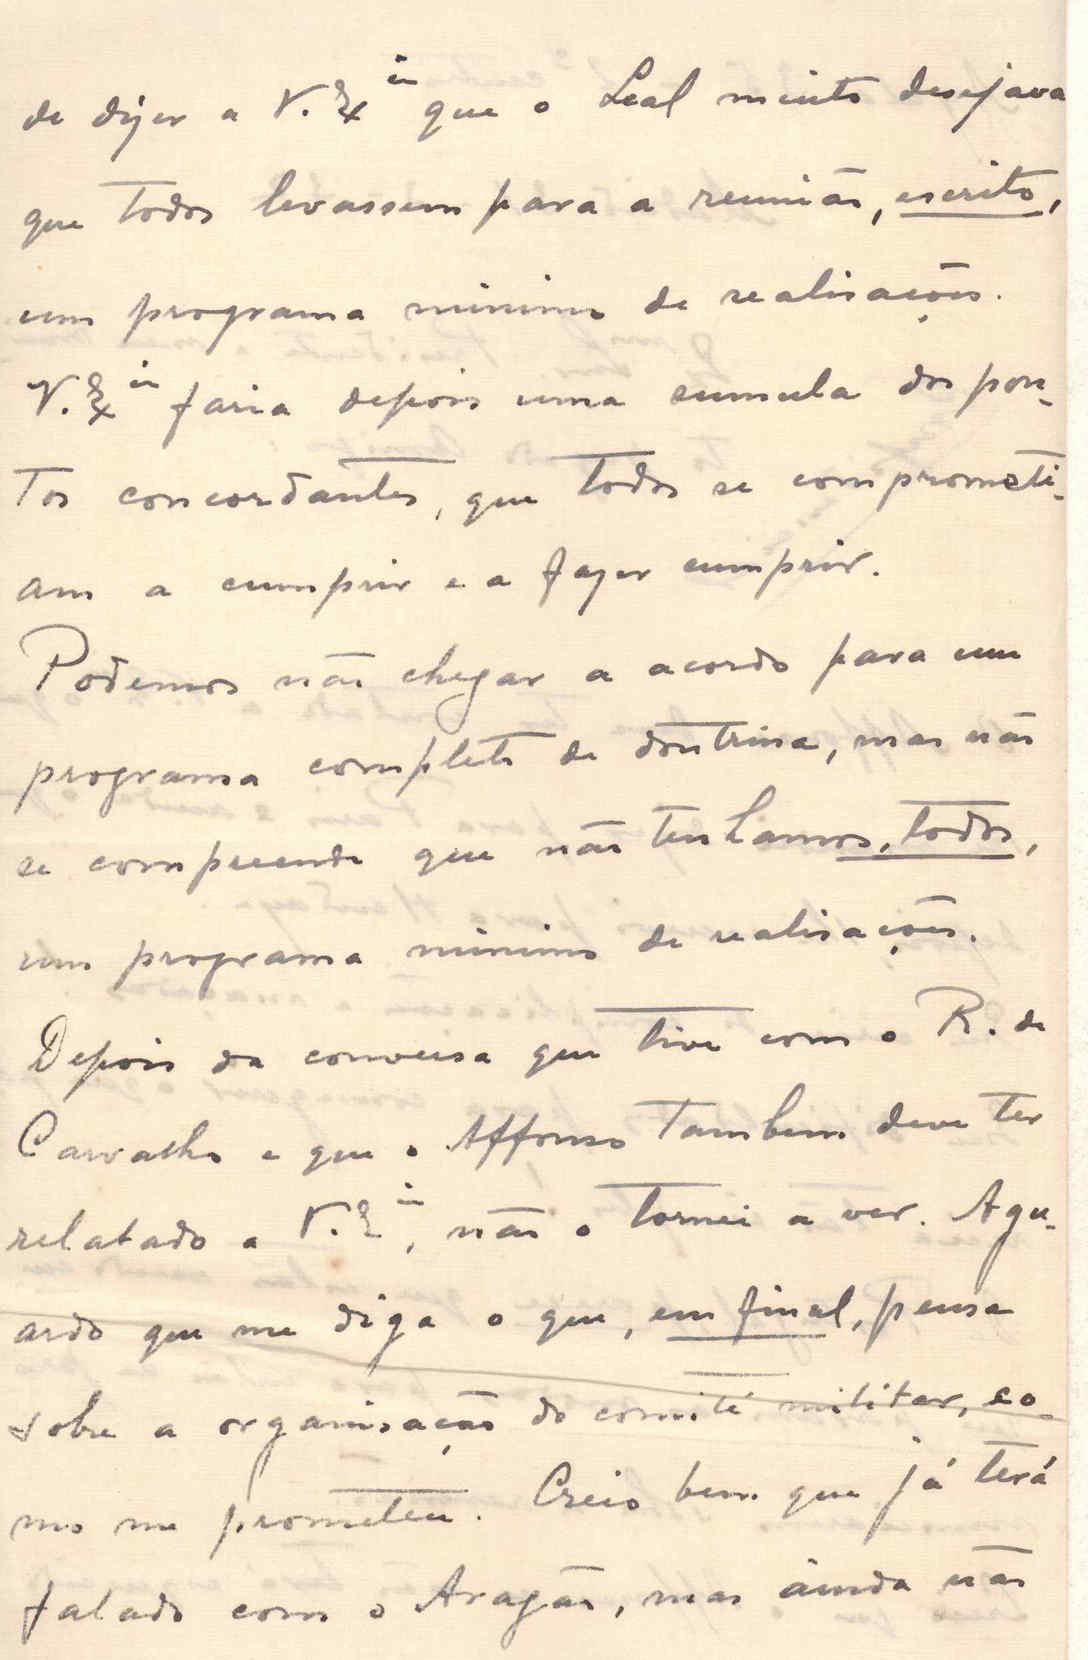 de dizer a V. Exª que o Leal muito desejava
que todos levassem para a reunião, escrito,
um programa minimo de realisações.
V. Exª faria depois uma sumula dos pon-
tos concordantes, que todos se comprometi-
am a cumprir e a fazer cumprir.
Podemos não chegar a acordo para um
programa completo de doutrina, mas não
se compreende que não tenhamos, todos,
um programa minimo de realisações.
Depois da conversa que tive com o R. de
Carvalho e que o Affonso tambem deve ter
relatado a V. Eª, não o tornei a ver. Agu-
ardo que me diga o que, em final, pensa
sobre a organisação do comité militar, co-
mo me prometeu. Creio bem que já terá
falado com o Aragão, mas ainda não